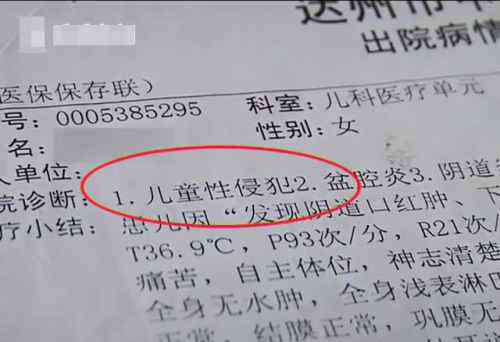 达州市中
出院病情
医保保存联）
号：0005385295 科室：儿科医疗单元
性别：女
人单位：
院诊断：1. 儿童性侵犯2. 盆腔炎3. 阴道
疗小结：患儿因“发现阴道口红肿、下
T36.9℃，P93次/分，R21次/
痛苦，自主体位，神志清楚
全身无水肿，全身浅表淋巴
正常，结膜正常，巩膜无